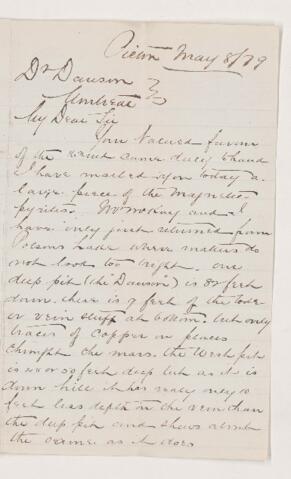 Pictou May 8/79
Dr Dawson
Montreal
My Dear Sir
Your valued favour
of the came duly to hand
I have mailed you today a
large piece of the Magnetic
pyrites. Mr McKay and I
have only just returned from
Lake where matters do
not look too bright. One
deep pit (the "Dawson") is 82 feet
down. there is 9 feet of the lode
or vein stuff at bottom. but only
traces of copper in places
through the mass. the West pit
is feet deep but as it is
down hill it has really only 10
feet less depth on the vein than
the deep pit and shows about
the same as it does